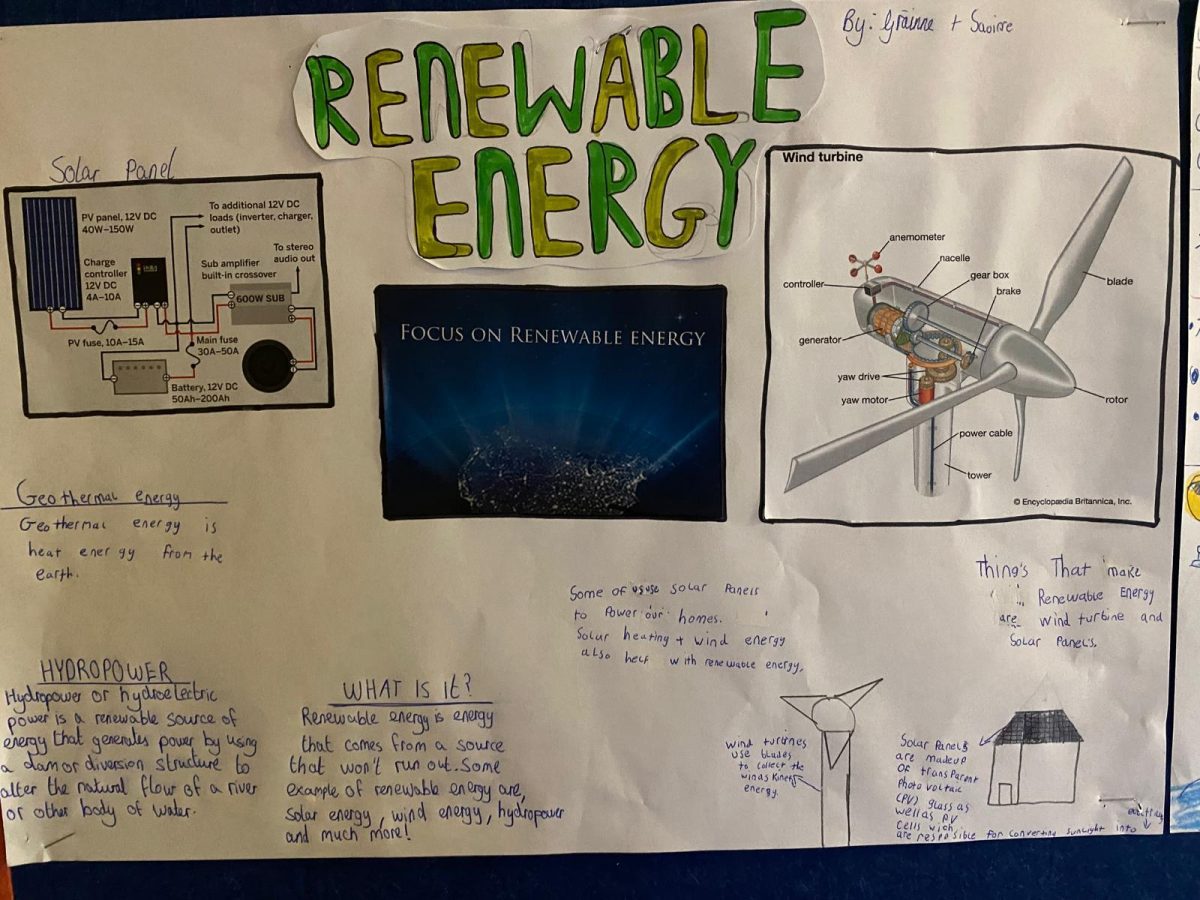 RENEWABLE
ENERGY
By: Gráinne + Saoirse
Solar Panel
PV panel, 12V DC
40W–150W
To additional 12V DC
loads (inverter, charger,
outlet)
To stereo
audio out
Charge
controller
12V DC
4A–10A
Sub amplifier
built-in crossover
600W SUB
PV fuse, 10A–15A
Main fuse
30A–50A
Battery, 12V DC
50Ah–200Ah
FOCUS ON RENEWABLE ENERGY
Wind turbine
anemometer
nacelle
gear box
brake
controller
blade
generator
yaw drive
yaw motor
rotor
power cable
tower
© Encyclopædia Britannica, Inc.
Geothermal energy
Geothermal energy is
heat energy from the
earth.
Some of us use Solar Panels
to Power our homes.
Solar heating + wind energy
also help with renewable energy.
Thing's That make
Renewable Energy
are wind turbine and
Solar Panel's.
HYDROPOWER
Hydropower or hydroelectric
power is a renewable source of
energy that generates power by using
a dam or diversion structure to
alter the natural flow of a river
or other body of water.
WHAT IS IT?
Renewable energy is energy
that comes from a source
that won't run out. Some
example of renewable energy are,
solar energy, wind energy, hydropower
and much more!
Wind turbines
use blades
to collect the
winds Kinetic
energy.
Solar Panels
are made up
of transParent
Photo voltaic
(PV) glass as
well as PV
cells wich
are responsible for converting sunlight into